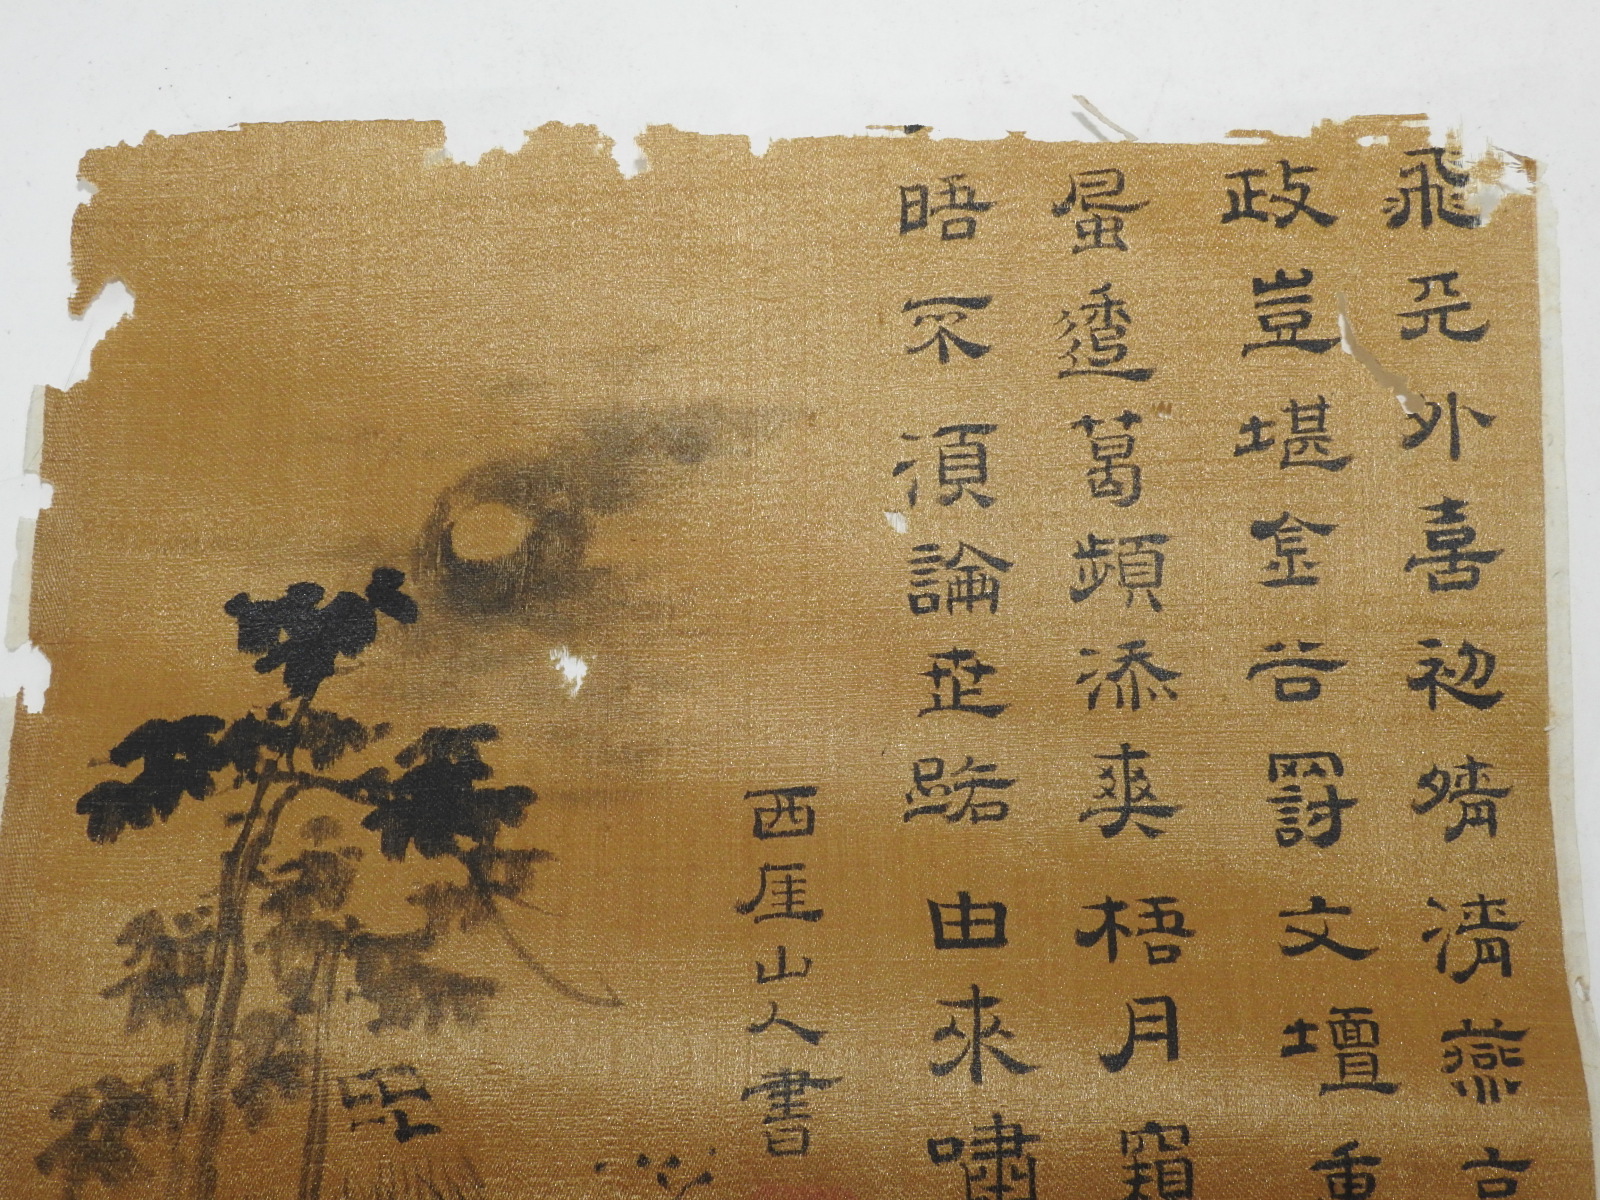 飛兲外喜初晴清燕言
政豈堪金谷罰文壇重
蛩透葛頻添爽梧月窺
晤不須論世路由來嘯
西厓山人書